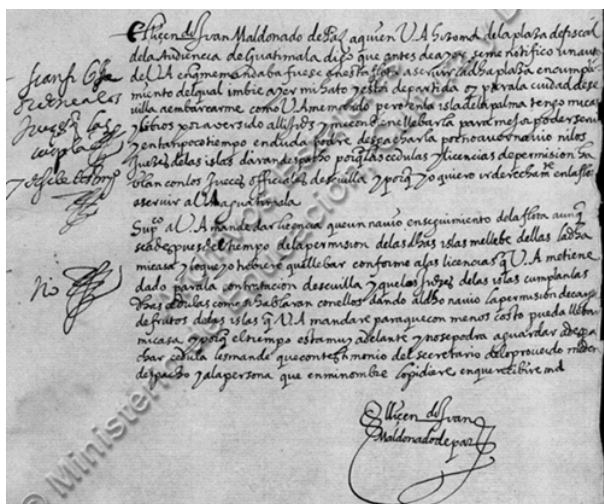 El licen do Juan Maldonado de Paz a quien V A hizo md de la plaza de fiscal
de la Audiencia de Guatemala digo que antes de ayer se me notifico un aut
de V A en q me mandaba fuese en esta flota a servir la dha plaza en cumpli
miento del qual imbie ayer mi hato y esta de partida oy para la ciudad de se
villa a embarcarme como V A me mando pero en la isla de la palma tengo mi casa
y libros por aver sido alli y me conviene llebarla para mejor poder servir
y en tan poco tiempo en duda podre despacharla por no aver navio ni los
juezes de las islas daran despacho porq las cedulas y licencias de permision ha
blan con los jueces officiales de sevilla y porq yo quiero ir derecham te en la flota
a servir a V A a guatimala
Sup co a V A mande dar licencia que un navio en seguimiento de la flota aunq
sea despues del tiempo de la permision de las dhas islas me llebe dellas la dha
mi casa y lo que yo tubiere que llebar conforme a las licencias q V A me tiene
dado para la contratacion de sevilla y que los juezes de las islas cumplan las
dhas cedulas como si hablaran con ellos dando al dho navio la permision de carga
de frutos de las islas q V A mandare para que con menos costo pueda llebar
mi casa y porq el tiempo esta muy adelante y no se podra aguardar a despa
char cedula les mande que con testimonio del secretario de lo proveydo me den
despacho y a la persona que en mi nombre lo pidiere en que recibire md
El licen do Juan
Maldonado de paz
no
© Ministerio de Educación